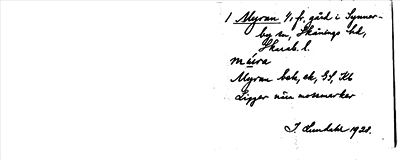 1 Myran 1/1 fr. gård i Synner-
by sn, Skånings hd,
Skarab. l.
mùra
Myran bok, ek, GS, Kb
Ligger nära mossmarker
J. Lundahl 1928.